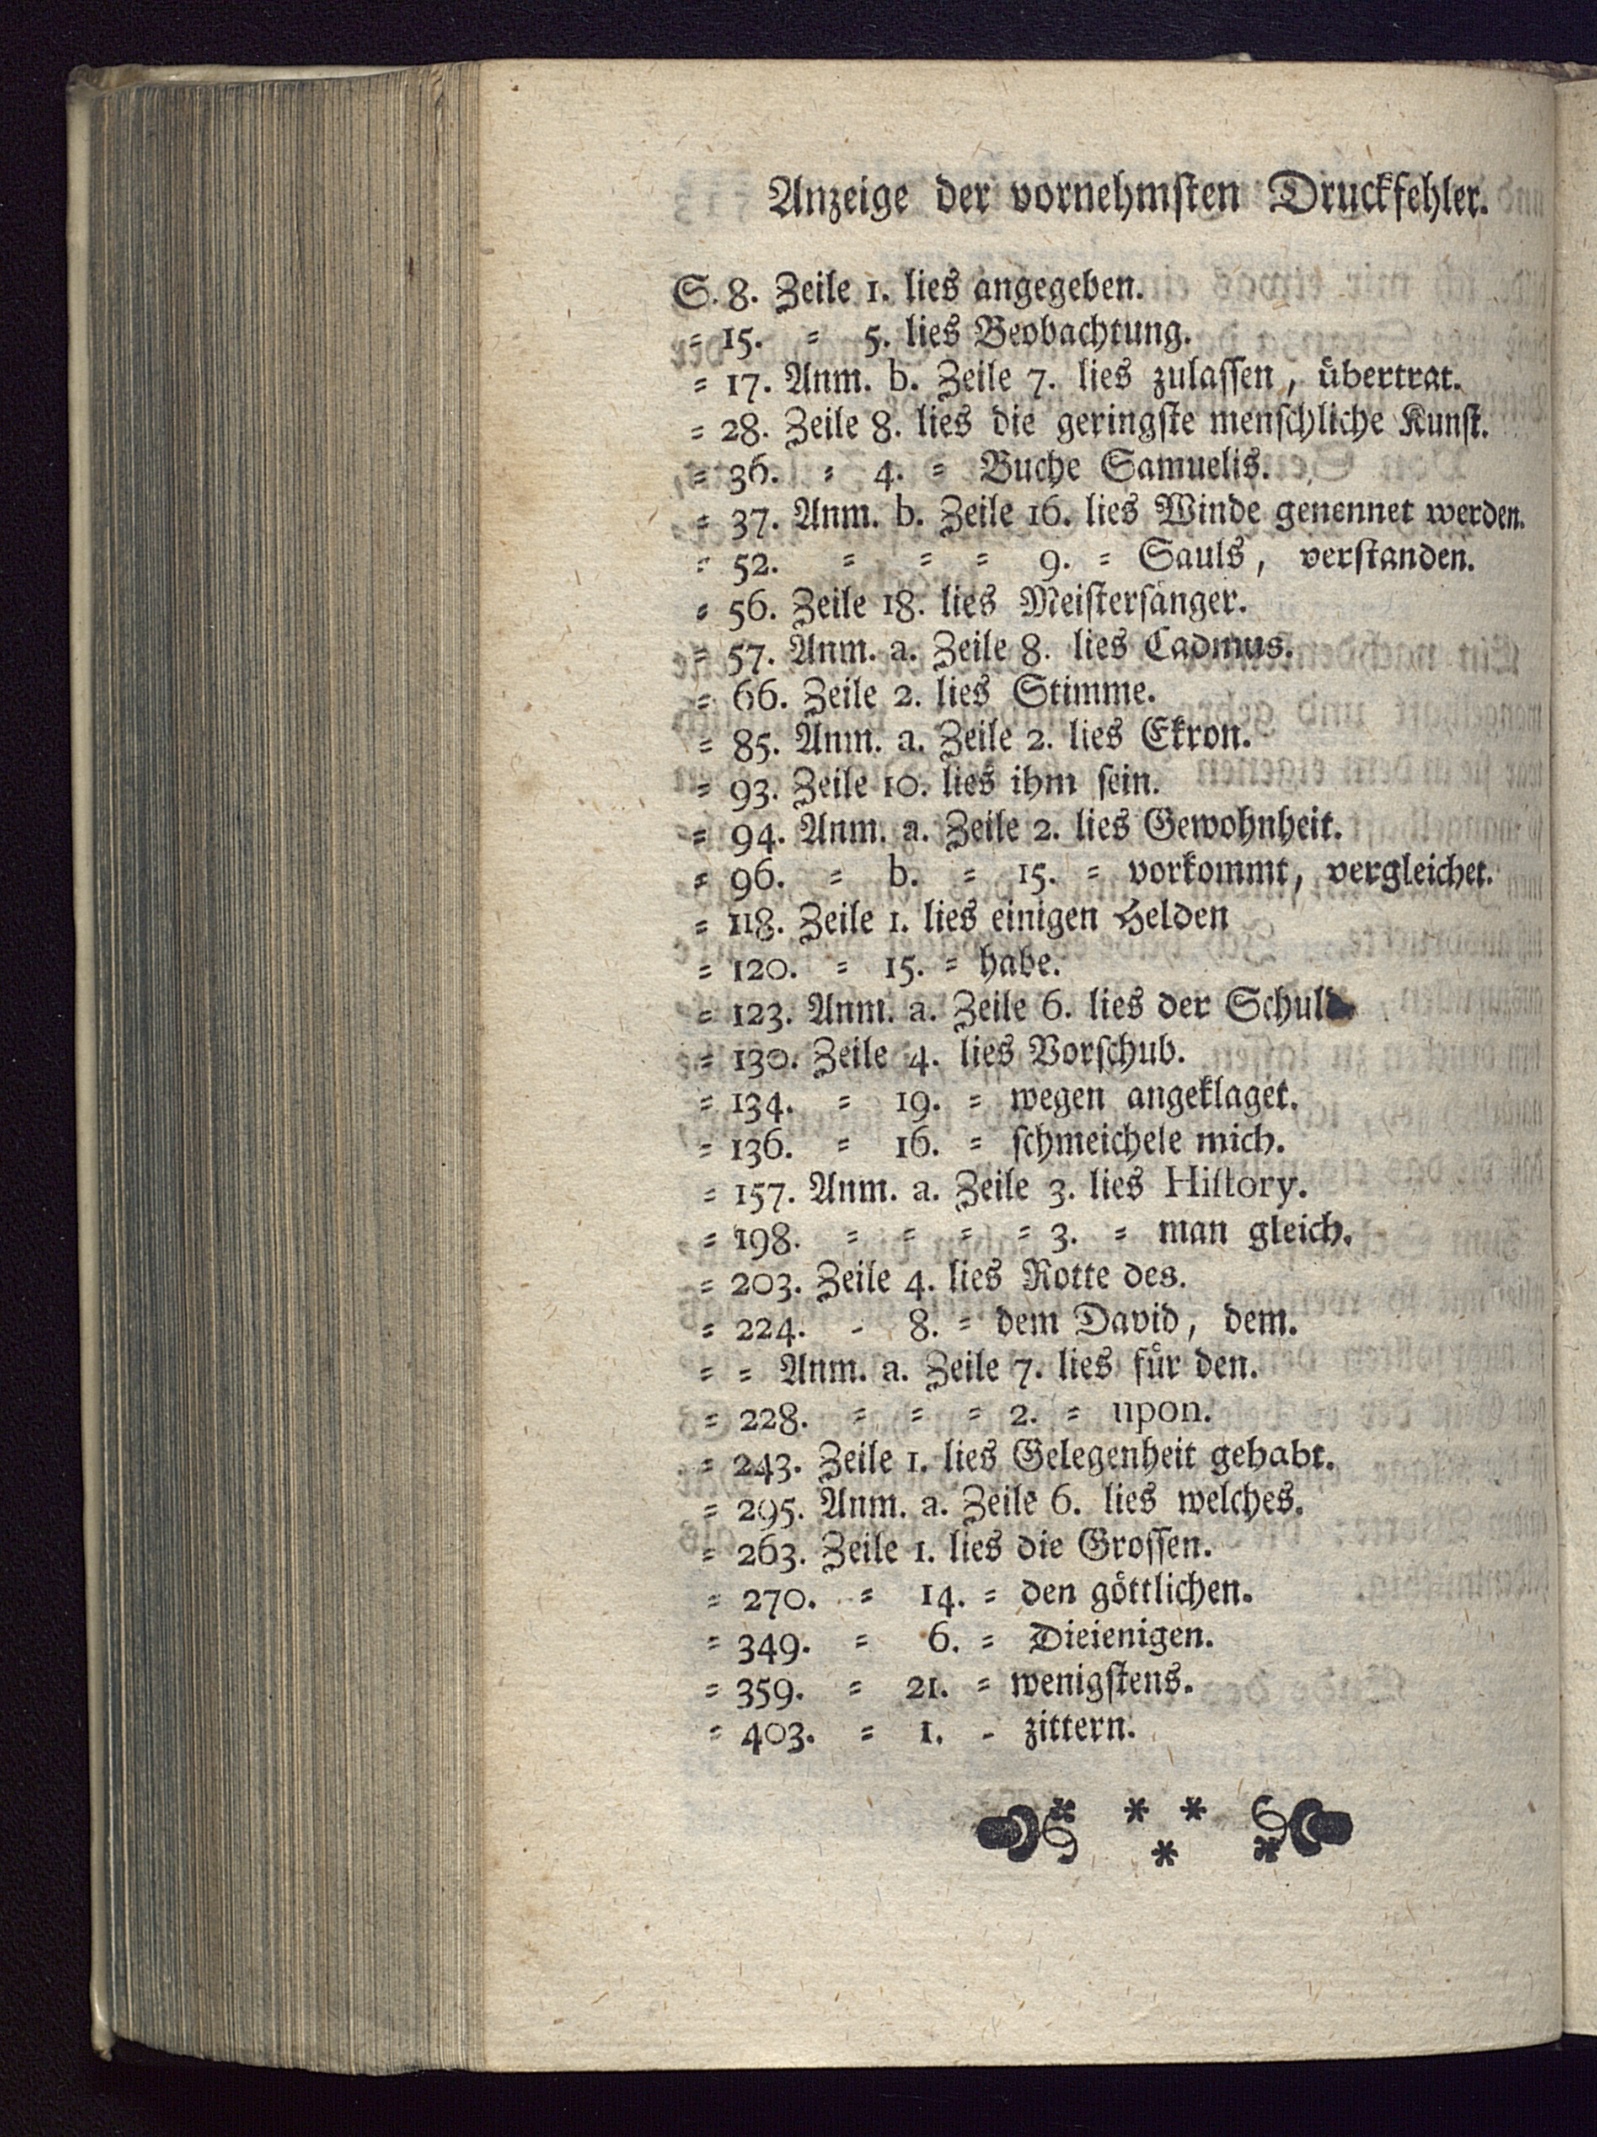 Anzeige der vornehmſten Druckfehler.
S. 8. Zeile 1. lies angegeben.
= 15. = 5. lies Beobachtung.
= 17. Anm. b. Zeile 7. lies zulaſſen, uͤbertrat.
= 28. Zeile 8. lies die geringſte menſchliche Kunſt.
= 36. = 4. = Buche Samuelis.
= 37. Anm. b. Zeile 16. lies Winde genennet werden.
= 52. = = = 9. = Sauls, verſtanden.
= 56. Zeile 18. lies Meiſterſaͤnger.
= 57. Anm. a. Zeile 8. lies Cadmus.
= 66. Zeile 2. lies Stimme.
= 85. Anm. a. Zeile 2. lies Ekron.
= 93. Zeile 10. lies ihm ſein.
= 94. Anm. a. Zeile 2. lies Gewohnheit.
= 96. = b. = 15. = vorkommt, vergleichet.
= 118. Zeile 1. lies einigen Helden
= 120. = 15. = habe.
= 123. Anm. a. Zeile 6. lies der Schuld.
= 130. Zeile 4. lies Vorſchub.
= 134. = 19. = wegen angeklaget.
= 136. = 16. = ſchmeichele mich.
= 157. Anm. a. Zeile 3. lies Hiſtory.
= 198. = = = = 3. = man gleich.
= 203. Zeile 4. lies Rotte des.
= 224. - 8. = dem David, dem.
= = Anm. a. Zeile 7. lies fuͤr den.
= 228. = = = 2. = upon.
= 243. Zeile 1. lies Gelegenheit gehabt.
= 295. Anm. a. Zeile 6. lies welches.
= 263. Zeile 1. lies die Groſſen.
= 270. = 14. = den goͤttlichen.
= 349. = 6. = Dieienigen.
= 359. = 21. = wenigſtens.
= 403. = 1. - zittern.